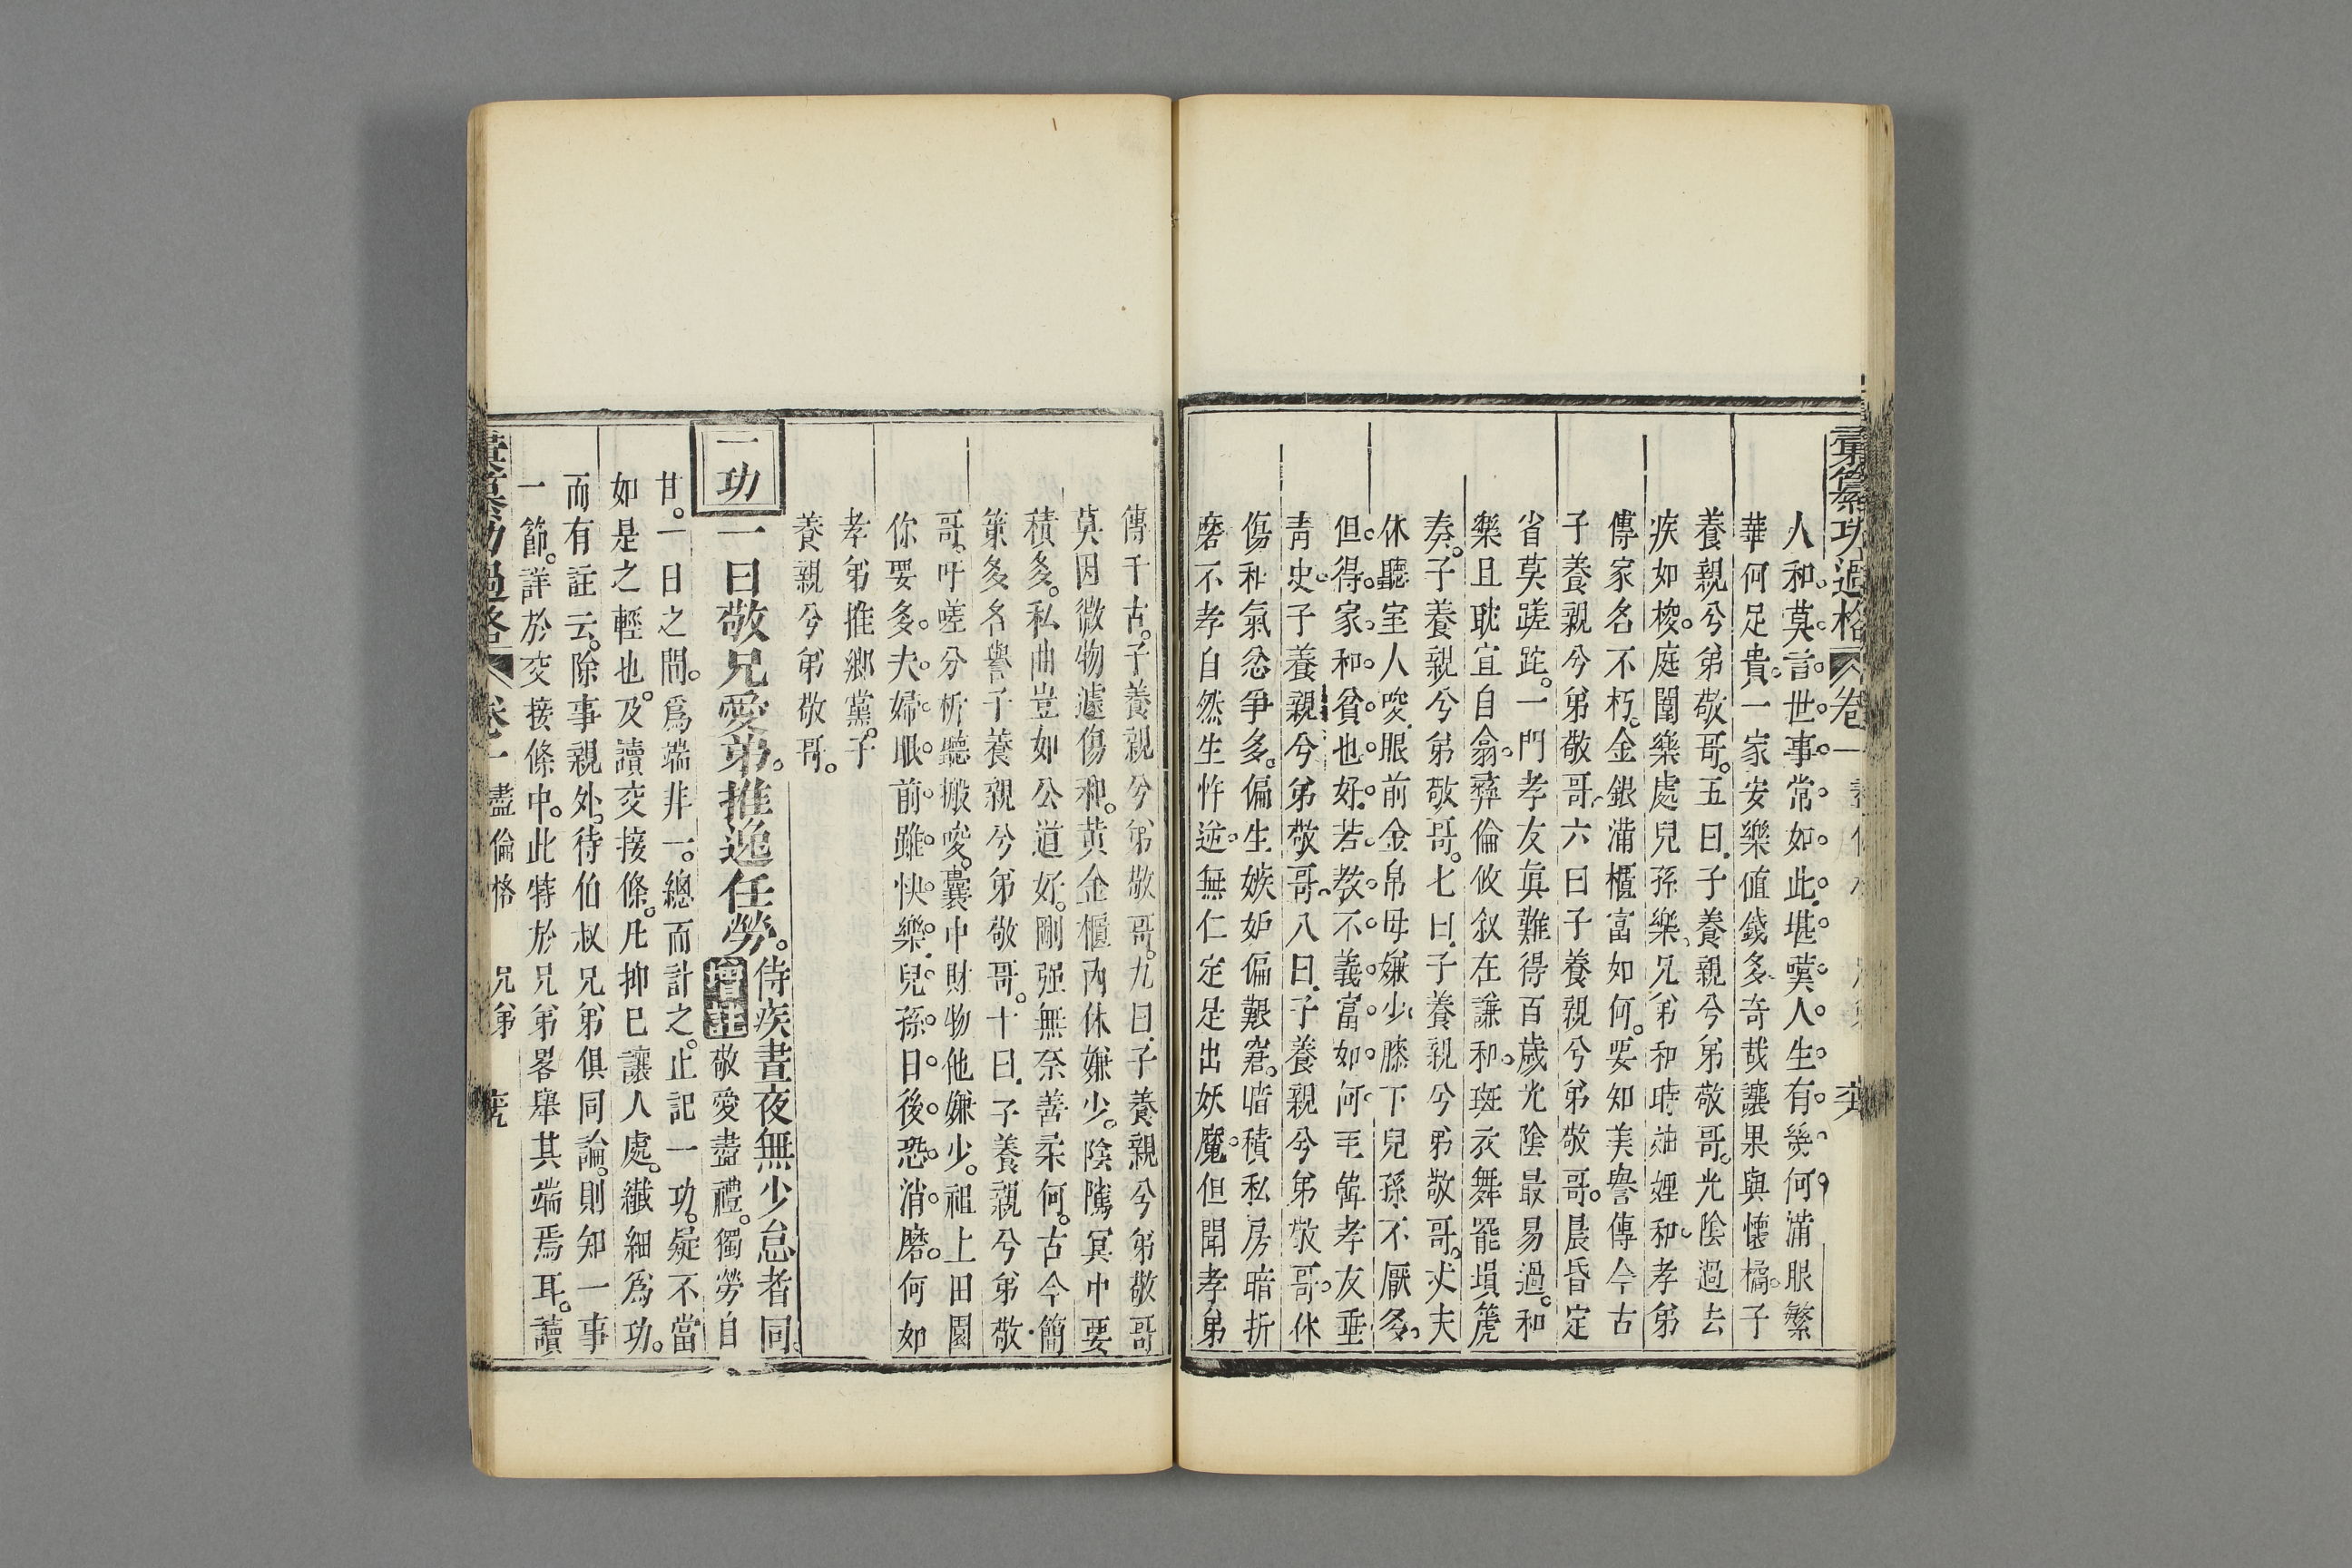 彙纂功過格 卷一
人和。莫言世事常如此。堪嘆人生有幾何。滿眼繁
華何足貴。一家安樂値錢多。奇哉讓果與懷橘。子
養親兮弟敬哥。五曰。子養親兮弟敬哥。光陰過去
疾如梭。庭闈樂處兒孫樂。兄弟和時妯娌和。孝弟
傳家名不朽。金銀滿櫃富如何。要知美譽傳今古
子養親兮弟敬哥。六曰子養親兮弟敬哥。晨昏定
省莫蹉跎。一門孝友眞難得百歲光陰最易過。和
樂且耽宜自翕。彞倫攸叙在謙和。斑衣舞罷塤篪
奏。子養親兮弟敬哥。七曰。子養親兮弟敬哥。丈夫
休聽室人唆。眼前金帛母嫌少。膝下兒孫不厭多。
但得家和貧也好。若教不義富如何。王韓孝友垂
靑史。子養親兮弟敬哥。八曰。子養親兮弟敬哥。休
傷和氣忿爭多。偏生嫉妒偏艱窘。暗積私房暗折
磨。不孝自然生忤逆。無仁定是出妖魔。但聞孝弟
傳千古。子養親兮弟敬哥。九曰。子養親兮弟敬哥
莫因微物遽傷和。黃金櫃內休嫌少。陰隲冥中要
積多。私曲豈如公道好。剛强無奈善柔何。古今簡
策多名譽子養親兮弟敬哥。十曰。子養親兮弟敬
哥。吁嗟分析聽搬唆。囊中財物他嫌少。祖上田園
你要多。夫婦眼前雖快樂。兒孫日後恐消磨。何如
孝弟推鄉黨。子
養親兮弟敬哥。
一功
一日敬兄愛弟。推逸任勞。侍疾晝夜無少怠者同。
增註 敬愛盡禮。獨勞自
甘。一日之間。爲端非一。總而計之。止記一功。疑不當
如是之輕也。及讀交接條。凡抑已讓人處。纖細爲功。
而有註云。除事親外。待伯叔兄弟俱同論。則知一事
一節。詳於交接條中。此特於兄弟畧舉其端焉耳。讀
彙纂功過格 卷一 盡倫格 兄弟